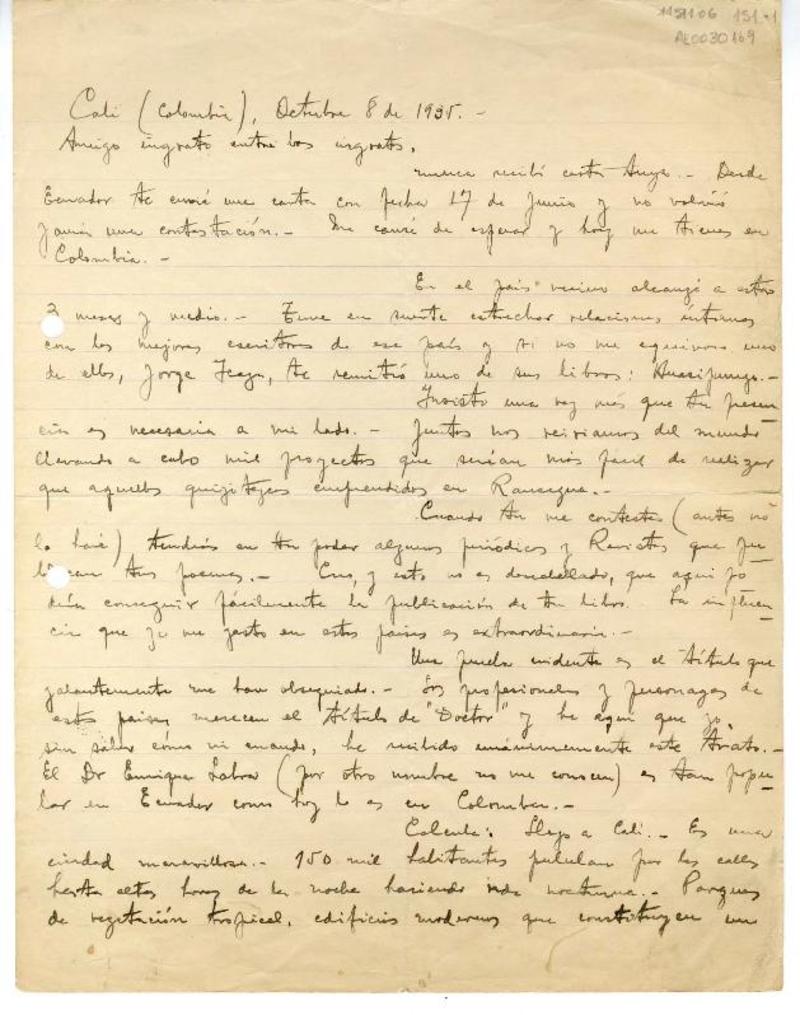 1151106 151-1
AE0030169
Cali (Colombia), Octubre 8 de 1935.-
Amigo ingrato entre los ingratos,
nunca recibí carta tuya.- Desde
Ecuador te envié una carta con fecha 17 de Junio y no volvió
jamás una contestación.- Me cansé de esperar y hoy me tienes en
Colombia.-
En el país vecino alcanzé a estar
3 meses y medio.- Tuve en suerte estrechar relaciones íntimas
con los mejores escritores de ese país y si no me equivoco uno
de ellos, Jorge Icaza, te remitió uno de sus libros: Huasipungo.-
Insisto una vez más que tu presen-
cia es necesaria a mi lado.- Juntos nos reiríamos del mundo
llevando a cabo mil proyectos que serían más fácil de realizar
que aquellos quijotescos emprendidos en Rancagua.-
Cuando tu me contestes (antes no
lo haré) tendrás en tu poder algunos periódicos y Revistas que pu-
blican tus poemas.- Creo, y esto no es descabellado, que aquí po
drías conseguir fácilmente la publicación de tu libro. La influen-
cia que yo me gasto en estos países es extraordinaria.-
Una prueba evidente es el título que
galantemente me han obsequiado.- Los profesionales y personages de
estos países merecen el título de "Doctor" y he aquí que yo,
sin saber cómo ni cuando, he recibido unánimemente este trato.-
El Dr Enrique Labra (por otro nombre no me conocen) es tan popu-
lar en Ecuador como hoy lo es en Colombia.-
Calcula: Llego a Cali.- Es una
ciudad maravillosa.- 150 mil habitantes pululan por las calles
hasta altas horas de la noche haciendo vida nocturna.- Parques
de vegetación tropical, edificios modernos que constituyen un